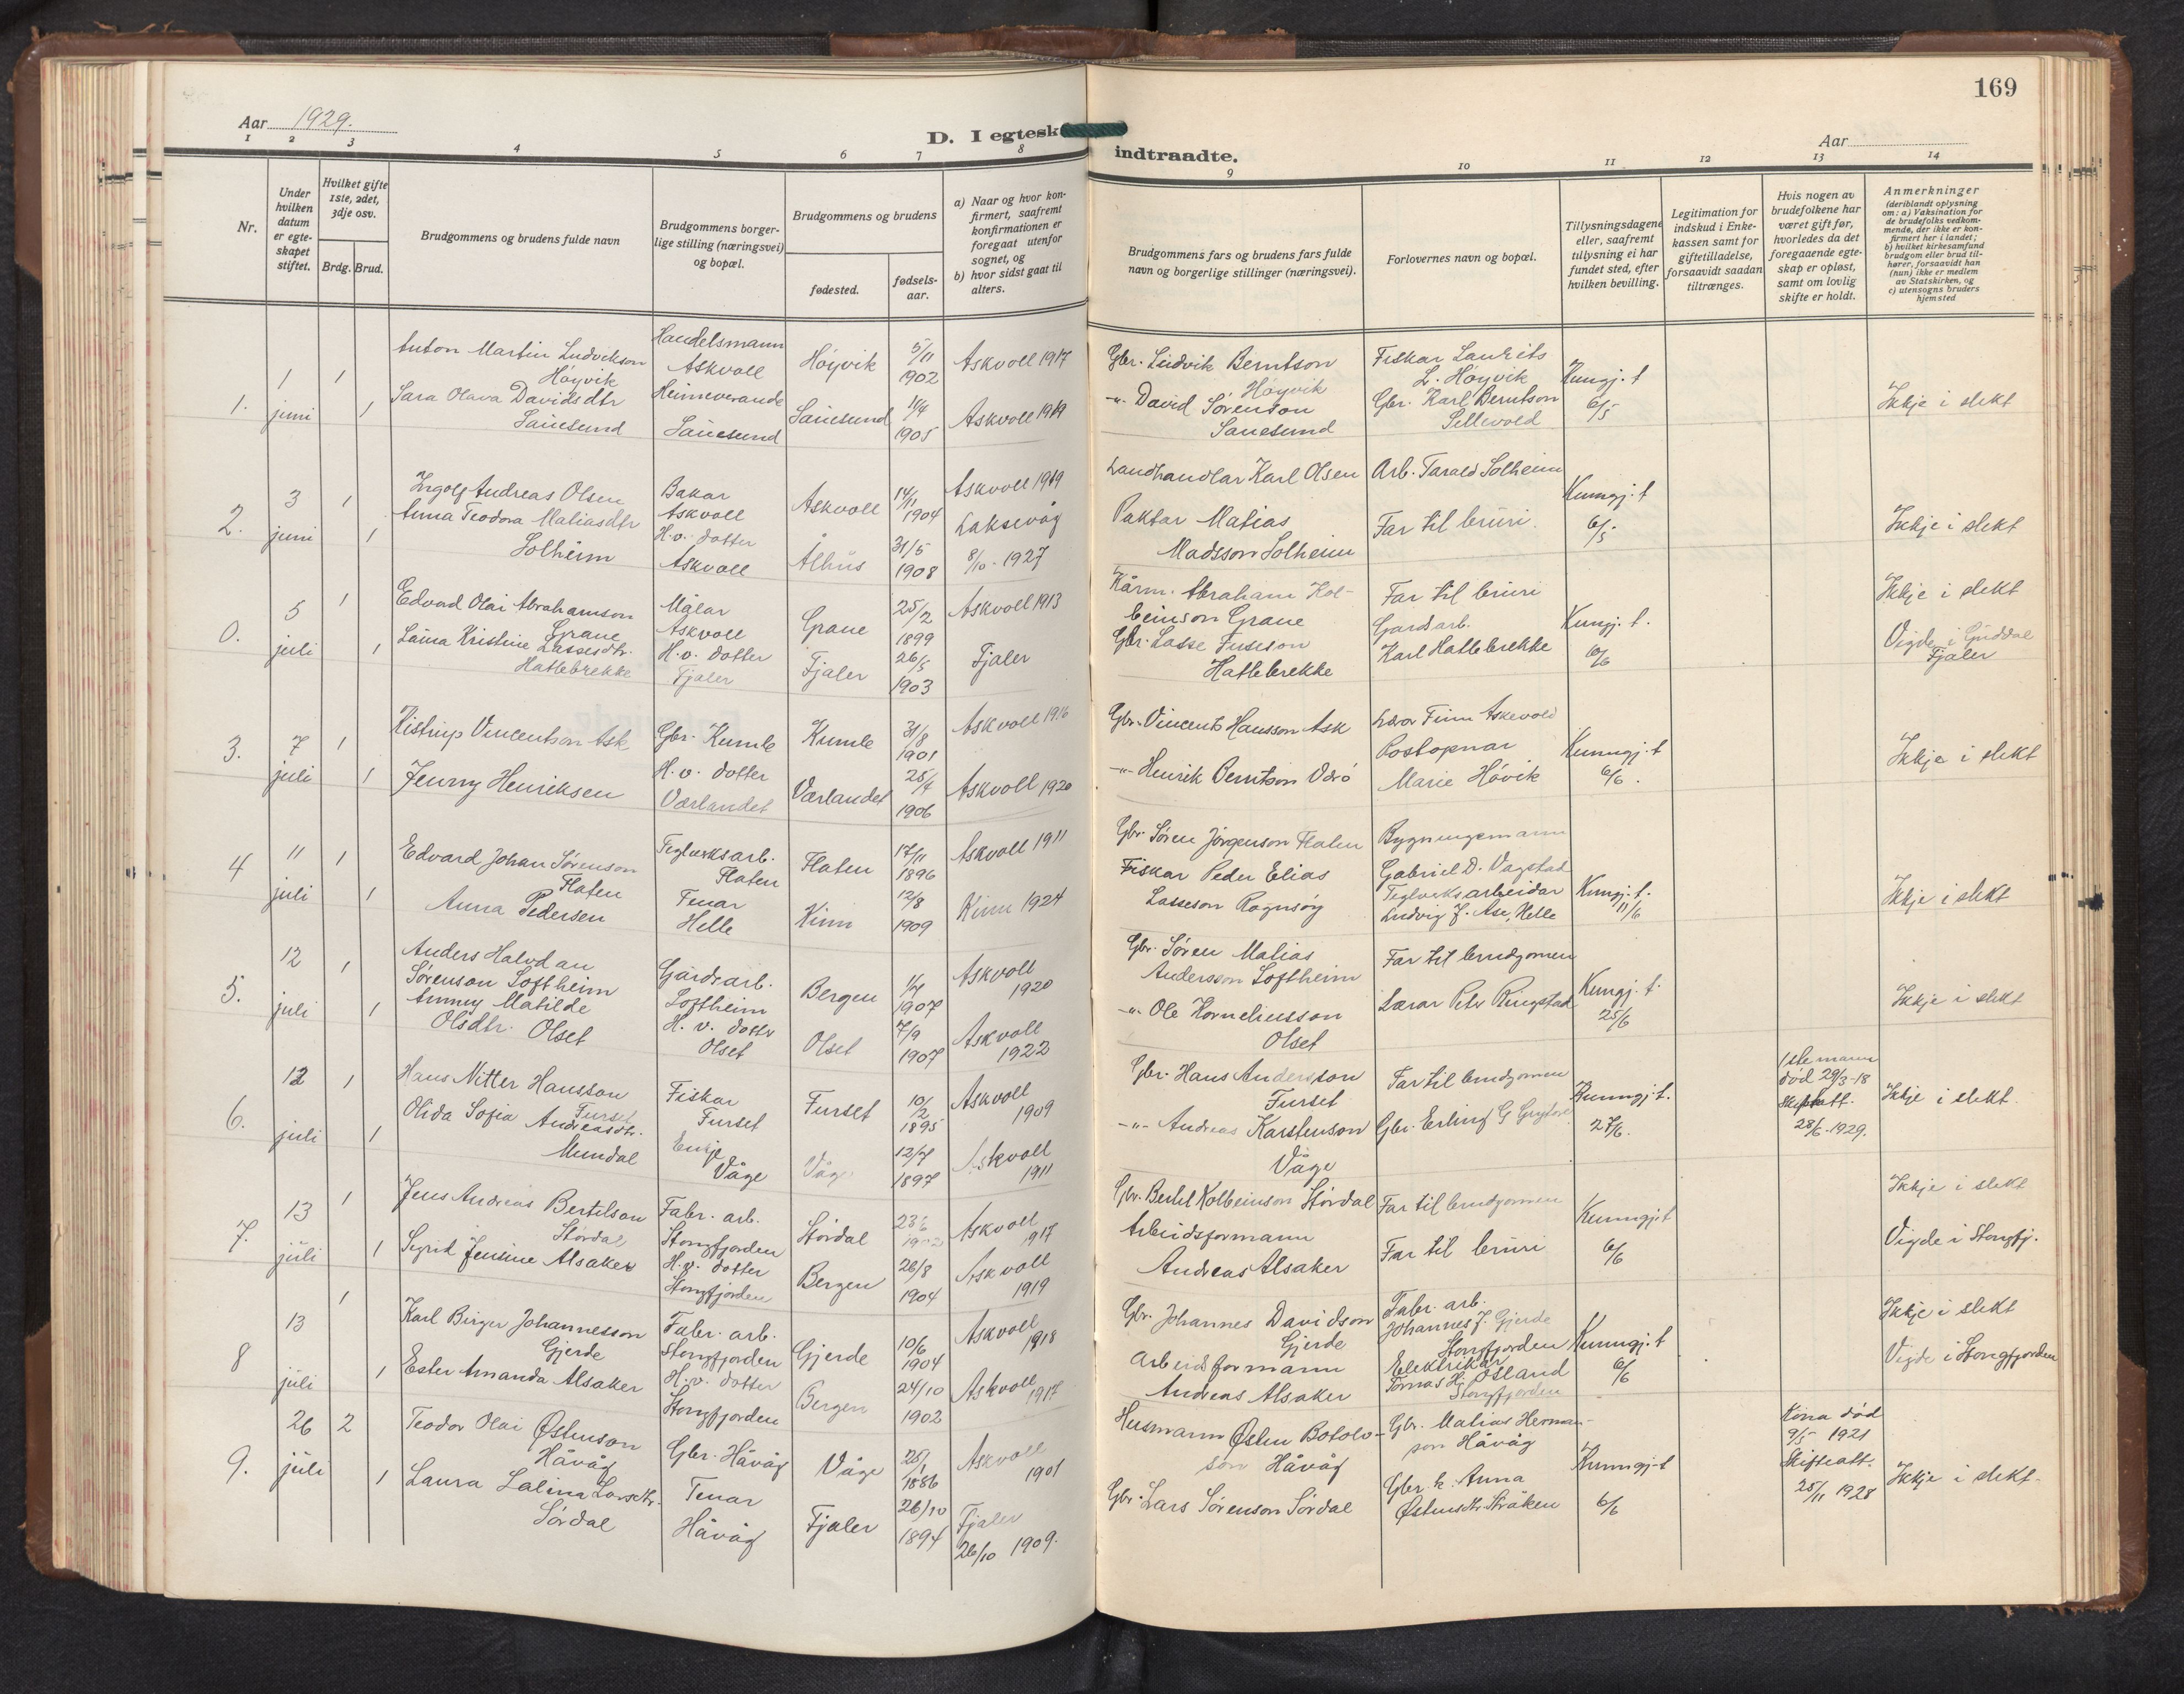 169
Aar 1929.
D. I egtesk
indtraadte.
Aar
1 2 3 4 5 6 7 8
9 10 11 12 13 14
Nr.
Under hvilken datum er egte-skapet stiftet.
Hvilket gifte 1ste, 2det, 3dje osv.
Brdg. Brud.
Brudgommens og brudens fulde navn
Brudgommens borger-lige stilling (næringsvei) og bopæl.
Brudgommens og brudens
fødested.
fødsels-aar.
a) Naar og hvor kon-firmert, saafremt konfirmationen er foregaat utenfor sognet, og
b) hvor sidst gaat til alters.
Brudgommens fars og brudens fars fulde navn og borgerlige stillinger (næringsvei).
Forlovernes navn og bopæl.
Tillysningsdagene eller, saafremt tillysning ei har fundet sted, efter hvilken bevilling.
Legitimation for indskud i Enke-kassen samt for giftetilladelse, forsaavidt saadan tiltrænges.
Hvis nogen av brudefolkene har været gift før, hvorledes da det foregaaende egte-skap er opløst, samt om lovlig skifte er holdt.
Anmerkninger (deriblandt oplysning om: a) Vaksination for de brudefolks vedkom-mende, der ikke er kon-firmert her i landet; b) hvilket kirkesamfund brudgom eller brud til-hører, forsaavidt han (hun) ikke er medlem av Statskirken, og c) utensogns bruders hjemsted
1. 1 juni 1 Anton Martin Ludvikson Høyvik Handelsmann Askvoll Høyvik 5/11 1902 Askvoll 1917
1 Sara Olava Davidsdtr Sauesund Heimeverande Sauesund Sauesund 1/4 1905 Askvoll 1919
Gbr. Ludvik Berntson Høyvik Fiskar Laurits L. Høyvik Kungj. t 6/5
-"- David Sørenson Sauesund Gbr. Karl Berntson Sellevold Ikkje i slekt
2. 3 juni 1 Ingolf Andreas Olsen Bakar Askvoll Askvoll 14/11 1904 Askvoll 1919
1 Anna Teodora Matiasdtr Solheim H.v. dotter Askvoll Ålhus 31/5 1908 Laksevåg 8/10 - 1927
Landhandlar Karl Olsen Arb. Tarald Solheim Kunngj. t 6/5
Paktar Matias Madsson Solheim Far til bruri. Ikkje i slekt
0. 5 juli 1 Edvard Olai Abrahamson Grane Målar Askvoll Grane 25/2 1899 Askvoll 1913
1 Lassesdtr. Hatlebrekke H.v. dotter Fjaler Fjaler 26/5 1903 Fjaler
Abraham Kol-beinson Grane Far til bruri Kungj. t. 6/6 Ikkje i slekt
Gbr. Lasse Hatlebrekke Gardsarb. Karl Hatlebrekke Vigde i Guddal Fjaler
3. 7 juli 1 Vincentson Ask Gbr. Kumle Kumle 31/8 1901 Askvoll 1916
1 Jenny Henriksen H.v. dotter Værlandet Værlandet 1906 Askvoll 1920
Gbr. Vincents Hansson Ask Finn Askevold Kunngj. t 6/6.
-"- Henrik Berntson Postopnar Marie Høvik Ikkje i slekt
4 11 juli 1 Edvard Johan Sørenson Flaten Teglverksarb. Flaten Flaten 17/11 1896 Askvoll 1911
1 Anna Pedersen Tenar Helle Kinn 12/8 1909 Kinn 1924
Gbr. Søren Jørgenson Flaten Bygningsmann Gabriel D. Vagstad Kungj. t. 11/6
Fiskar Peder Elias Lasseson Teglverksarbeidar Ludvig J. Ase, Helle Ikkje i slekt
5. 12 juli 1 Anders Halvdan Sørenson Loftheim Gårdsarb. Loftheim Bergen 1907 Askvoll 1920
1 Matilde Olsdtr. Olset H.v. dotter Olset Olset 7/9 1907 Askvoll 1922
Gbr. Søren Matias Andersson Loftheim Far til brudgomen Kungj. t. 25/6
-"- Ole Korneliusson Olset Lærar Peter Ringstad Ikkje i slekt
6. 12 juli 1 Hans Nitter Hansson Furset Fiskar Furset Furset 10/2 1895 Askvoll 1909
1 Olida Sofia Andreasdtr. Mundal Enkje Våge Våge 12/7 1897 Askvoll 1911
Gbr. Hans Andersson Furset Far til brudgomen Kunngj. t. 27/6. 1ste mann død 29/3-18 Skifteatt. 28/6-1929. Ikkje i slekt.
-"- Andreas Karstenson Våge Gbr. Erling G
7. 13 juli 1 Jens Andreas Bertelson Stórdal Fabr. arb. Stongfjorden Stórdal Askvoll 1917
1 Sigrid Jensine Alsaker H.v. dotter Stongfjorden Bergen 26/8 1904 Askvoll 1919
Gbr. Bertel Kolbeinson Stórdal Far til brudgomen Kunngj. t 6/6 Ikkje i slekt
Arbeidsformann Andreas Alsaker Far til bruri Vigde i Stongfj.
8 13 juli 1 Karl Birger Johannesson Gjerde Fabr. arb. Stongfjorden Gjerde 10/6 1904 Askvoll 1918
1 Ester Amanda Alsaker H.v. dotter Stongfjorden Bergen 24/10 1902 Askvoll 1917
Gbr. Johannes Davidson Gjerde Fabr. arb. Johannes J. Gjerde Stongfjorden Kunngj. t 6/6 Ikkje i slekt
Arbeidsformann Andreas Alsaker Elektrikar Tomas H. Østland Stongfjorden Vigde i Stongfjorden
9. 26 juli 2 Teodor Olai Østenson Håvåg Gbr. Håvåg Våge 1886 Askvoll 1901
1 Laura Lalina Larsdtr. Sørdal Tenar Håvåg Fjaler 26/10 1894 Fjaler 26/10 1909.
Husmann Østen Botolv-son Håvåg Gbr. Matias Herman-son Håvåg Kunngj. t 6/6 Kona død 9/5 1921 Skifteatt. 25/11 1928 Ikkje i slekt.
Gbr. Lars Sørenson Sørdal Gbr. k. Anna Østensdtr. Stråken